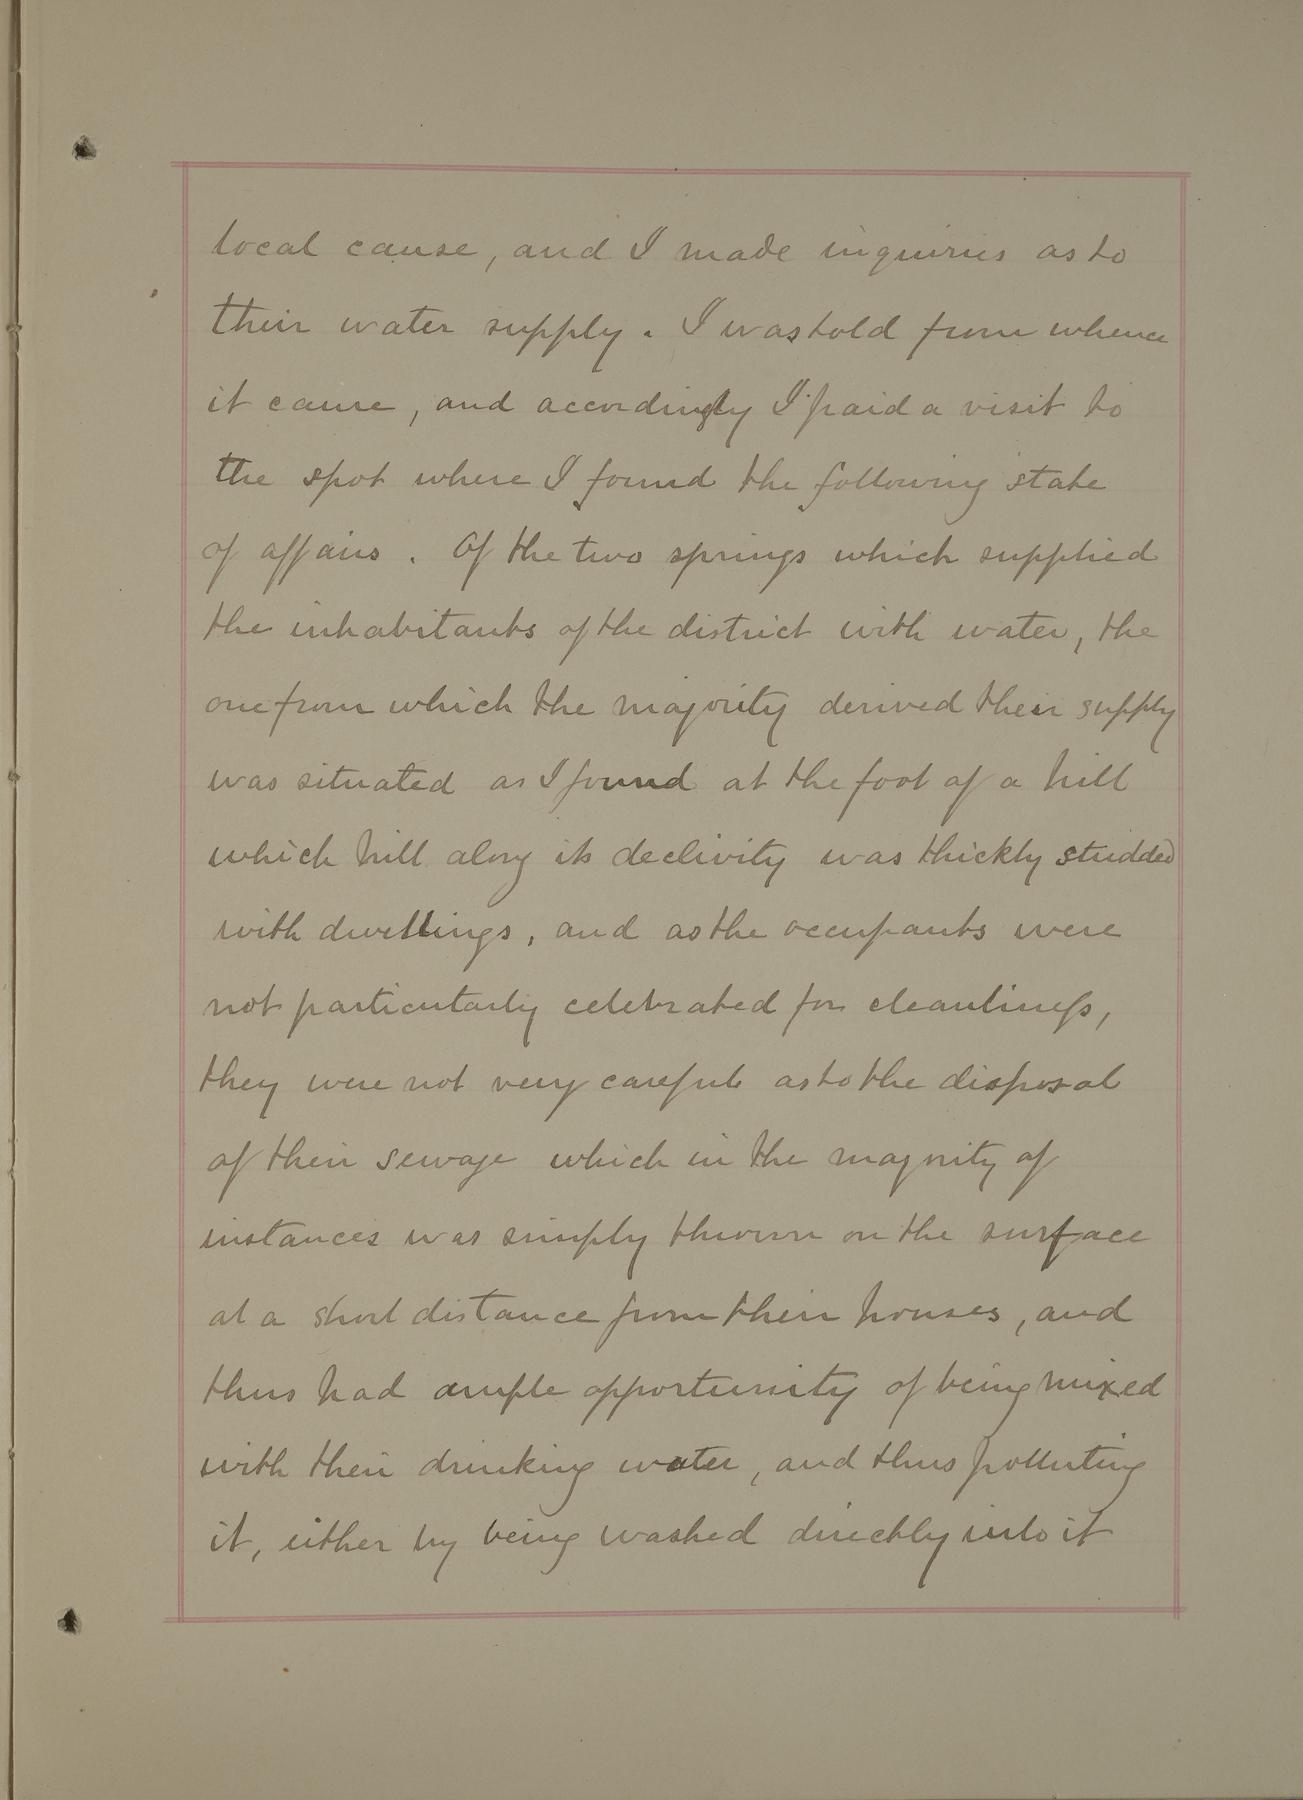 local cause, and I made inquiries as to
their water supply. I was told from whence
it came, and accordingly I paid a visit to
the spot where I found the following state
of affairs. Of the two springs which supplied
the inhabitants of the district with water, the
one from which the majority derived their supply
was situated as I found at the foot of a hill
which hill along its declivity was thickly studded
with dwellings, and as the occupants were
not particularly celebrated for cleanliness,
they were not very careful as to the disposal
of their sewage which in the majority of
instances was simply thrown on the surface
at a short distance from their houses, and
thus had ample opportunity of being mixed
with their drinking water, and thus polluting
it, either by being washed directly into it